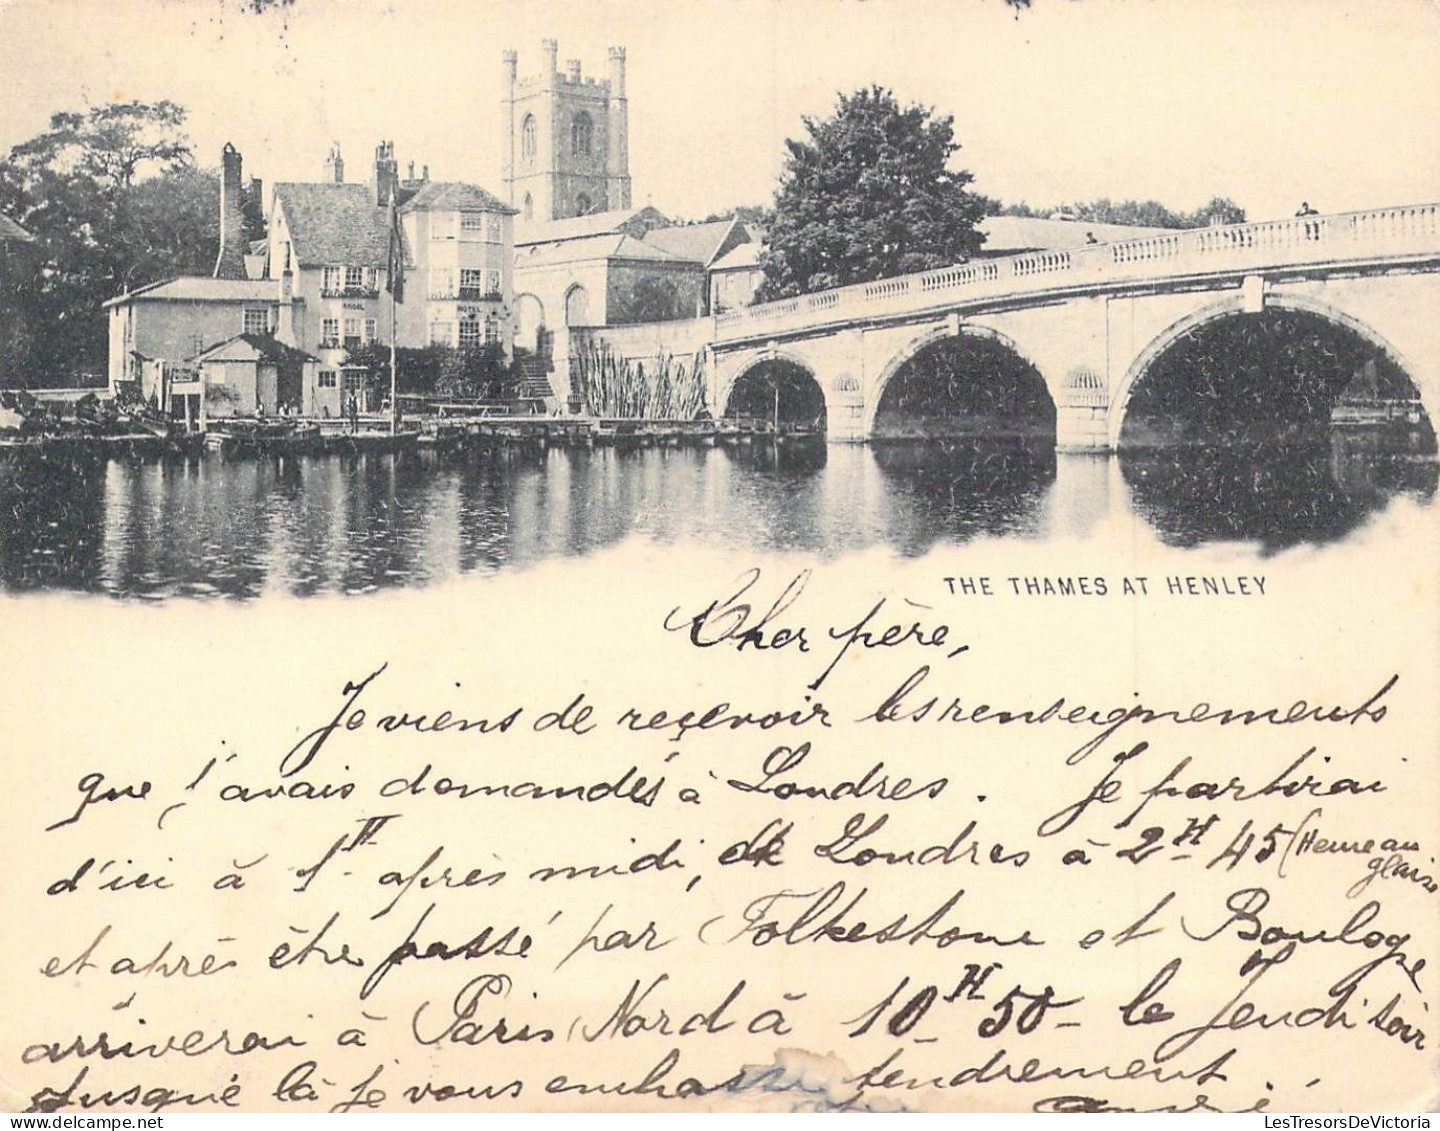 THE THAMES AT HENLEY
Cher père,
Je viens de reçevoir les renseignements
que j'avais demandés à Londres. Je partirai
d'ici à 1H après midi, de Londres à 2H 45 (Heure an
glaise
et après être passé par Folkestone et Boulogne
arriverai à Paris Nord à 10H 50 - le Jeudi soir
Jusque là je vous embrasse tendrement.
André
LesTresorsDeVictoria.com